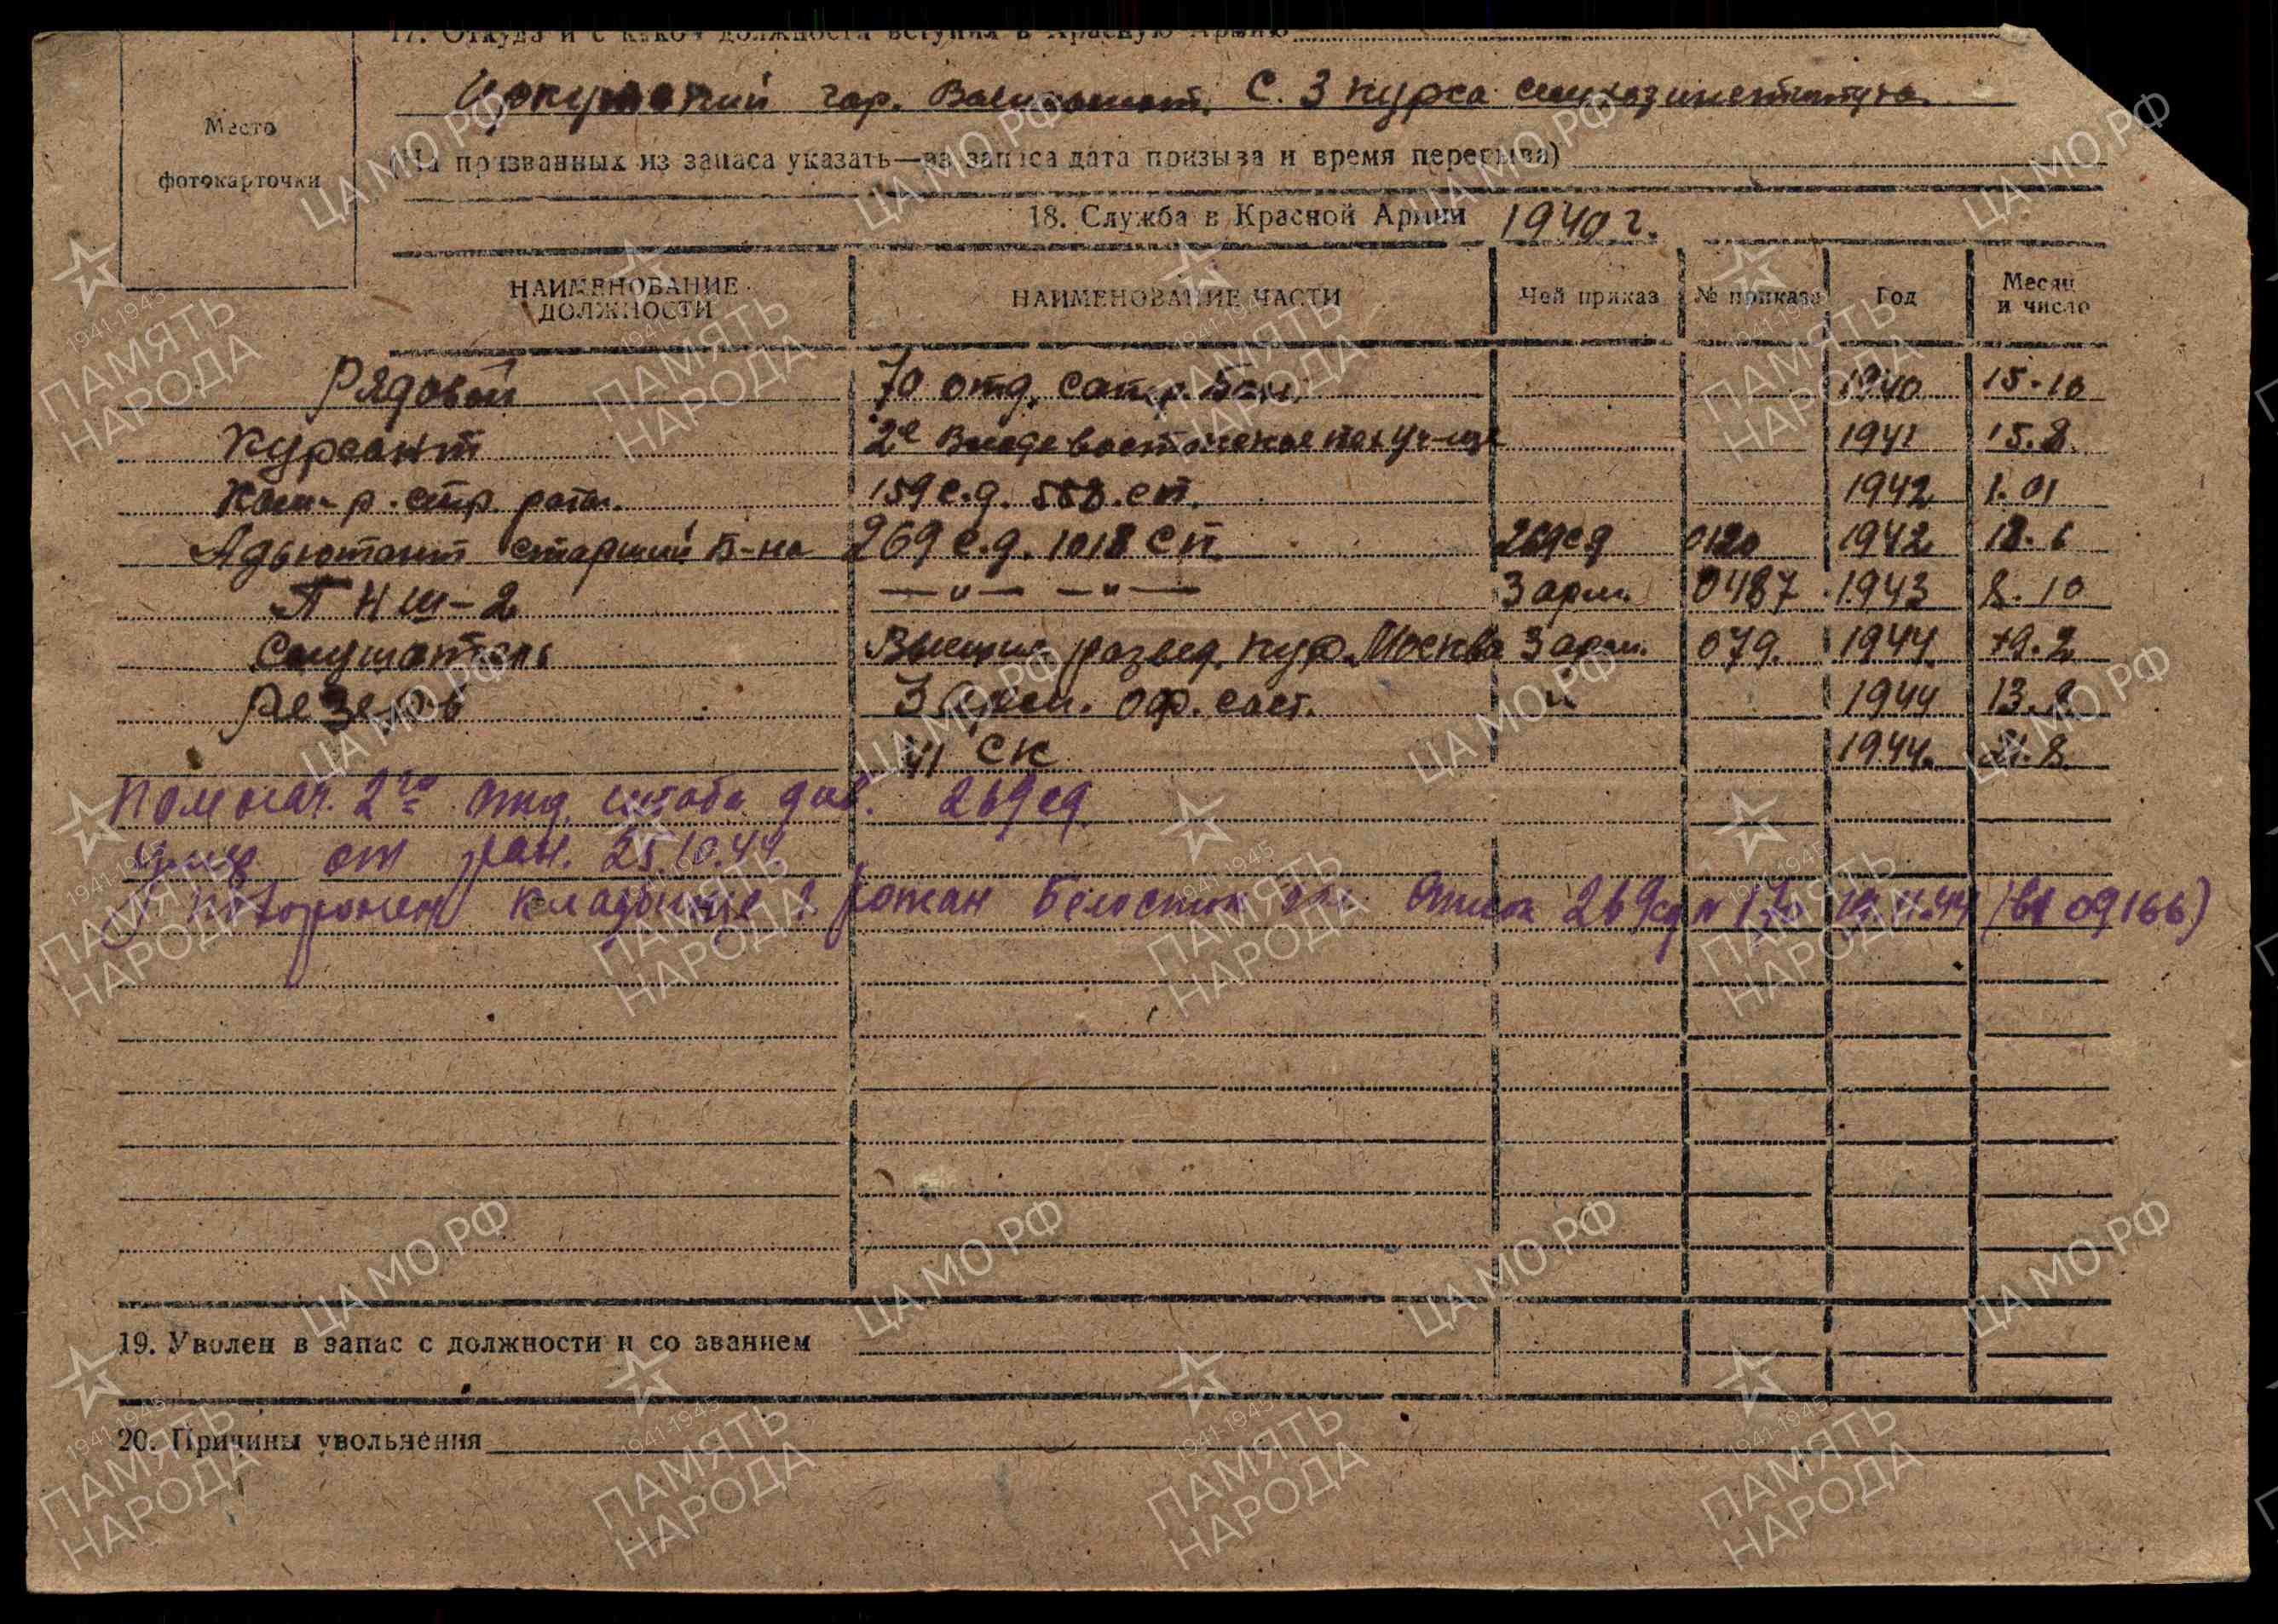 17. Откуда и с какой должности вступил в Красную Армию
гор. С. 3 курса сельхозинститута.
Место фотокарточки
(На призванных из запаса указать—из запаса дата призыва и время перерыва)
18. Служба в Красной Армии 1940 г.
НАИМЕНОВАНИЕ ДОЛЖНОСТИ НАИМЕНОВАНИЕ ЧАСТИ Чей приказ № приказа Год Месяц и число
Рядовой 70 отд. сапер. бат. 1940 15.10
Курсант 2е Владивостокское пех уч-ще 1941 15.8.
Ком-р. стр. роты. 159 с.д. 558. сп. 1942 1.01
Адьютант старший б-на 269 с.д. 1018 сп. 269 сд 0120 1942 18.6
ПНШ-2 —"— —"— 3 арм. 0487 1943 8.10
Слушатель Высшие развед. кур. Москва 3 арм. 079. 1944. 2
Резерв 3 Арм. оф. сост. " 1944 13.8
41 СК 1944. 21.8.
Пом нач. 2го отд. штаба див. 269 сд.
умер от ран. 25.10.44
похоронен кладбище г. Рожан Белосток обл. 269 сд № 44 (вх 09166)
19. Уволен в запас с должности и со званием
20. Причины увольнения
ЦА МО РФ
1941-1945
ПАМЯТЬ
НАРОДА